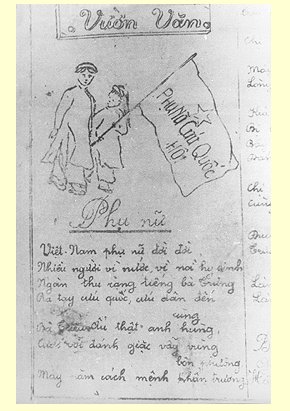 Vườn Văn.
Phụ nữ Cứu Quốc
Hội
Phụ nữ
Việt-Nam phụ nữ đời đời
Nhiều người vì nước vì nòi hy sinh
Ngàn thu rạng tiếng bà Trưng
Ra tay cứu quốc, cứu dân đến
cùng
Bà Triệu Ẩu thật anh hùng,
Cưỡi voi đánh giặc vẫy vùng
bốn phương
Mấy năm cách mệnh phấn trương